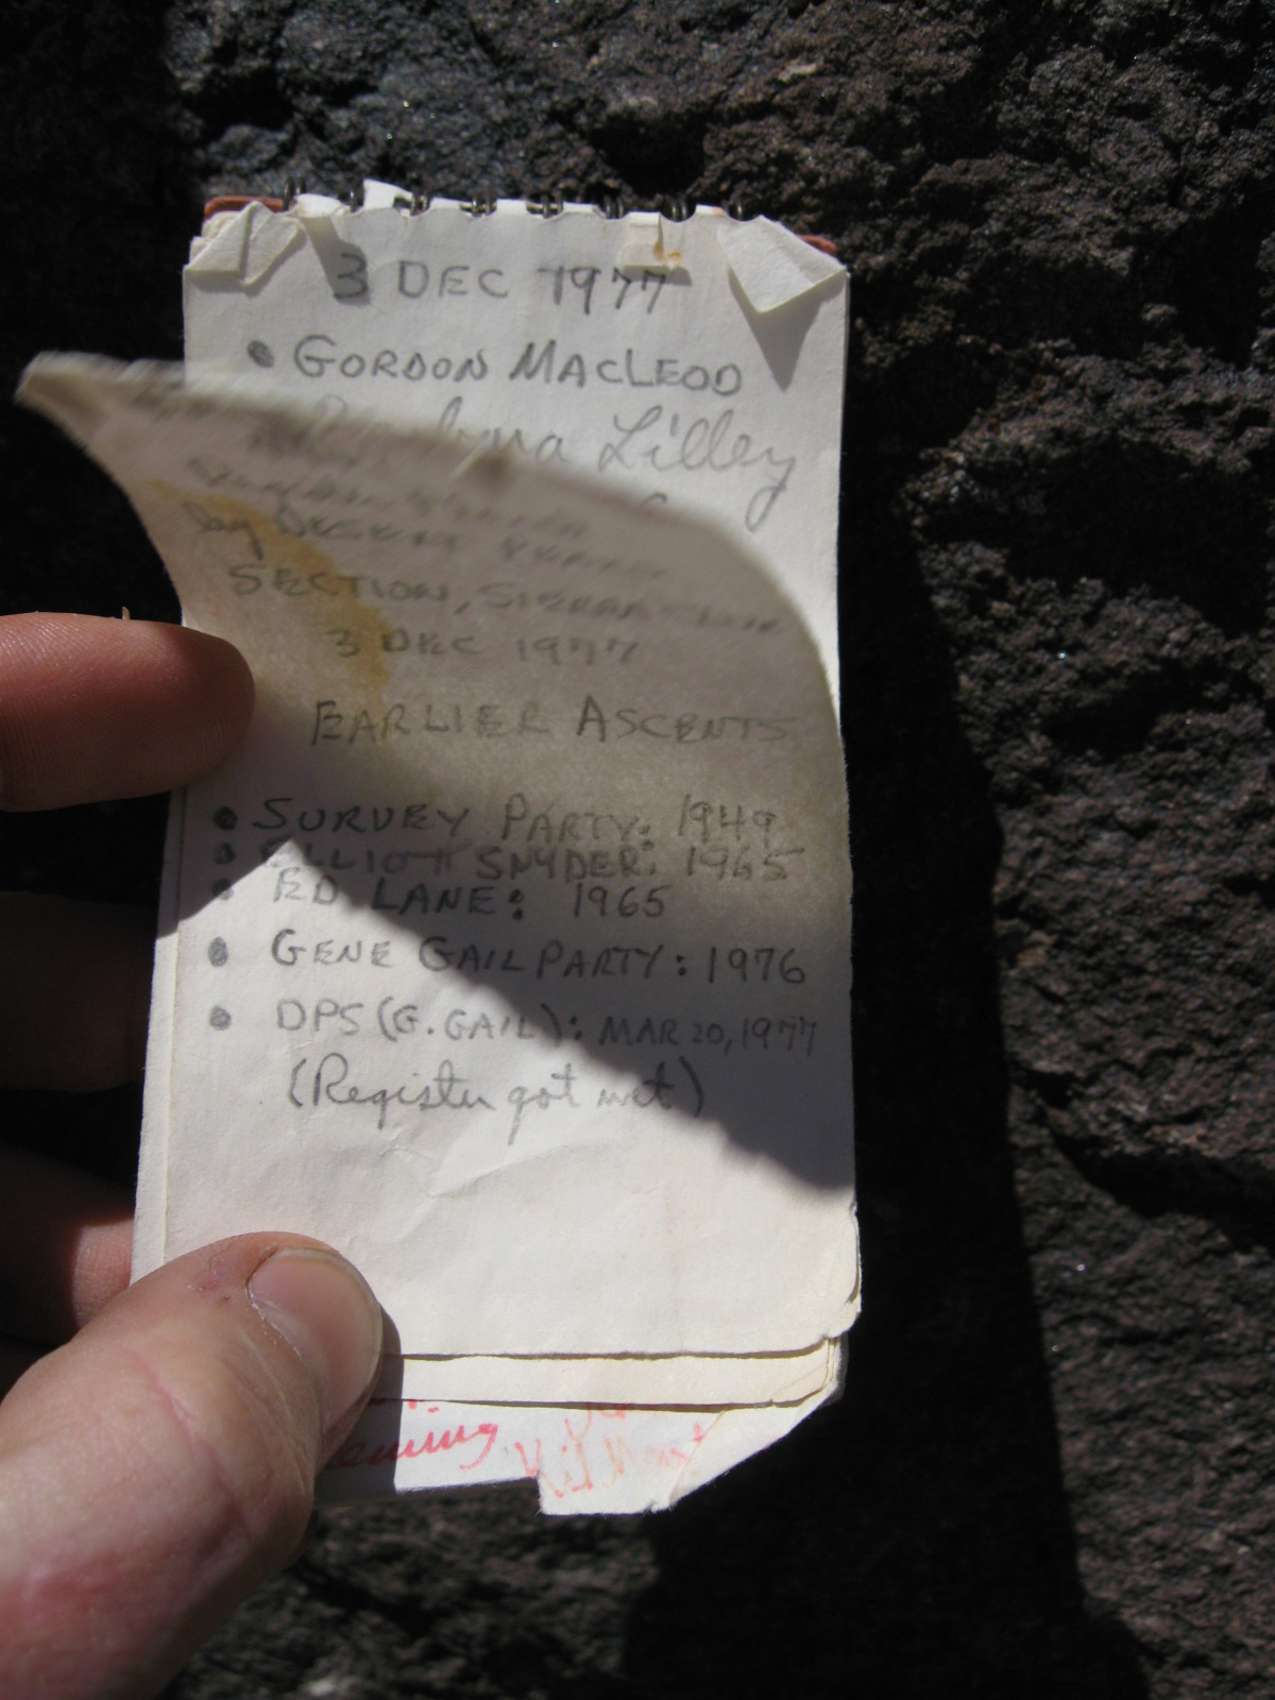 3 DEC 1977
• GORDON MACLEOD
Lilley
by DESERT
SECTION, SIERRA
3 DEC 1977
EARLIER ASCENTS
• SURVEY PARTY: 1949
• ELLIOTT SNYDER: 1965
• ED LANE: 1965
• GENE GAIL PARTY: 1976
• DPS (G. GAIL): MAR 20, 1977
(Register got wet)